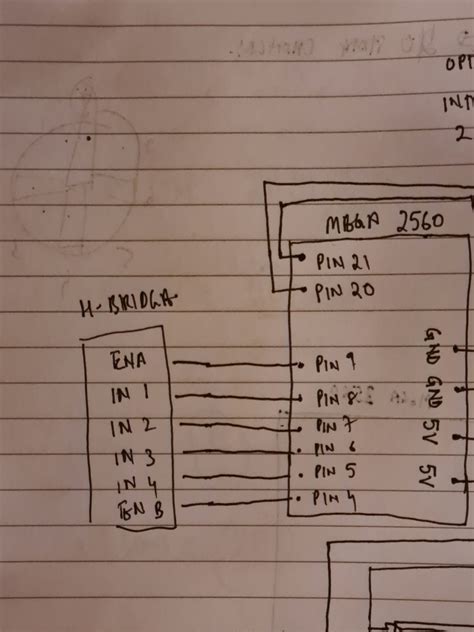 OPT
INT
2
MEGA 2560
PIN 21
PIN 20
H-BRIDGA
ENA
IN 1
IN 2
IN 3
IN 4
EN B
PIN 9
PIN 8
PIN 7
PIN 6
PIN 5
PIN 4
GND
GND
5V
5V